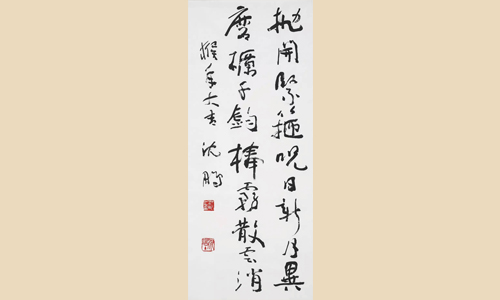 抛開緊箍呪日新月異
磨礪千鈞棒霧散云消
猴年大吉 沈鵬